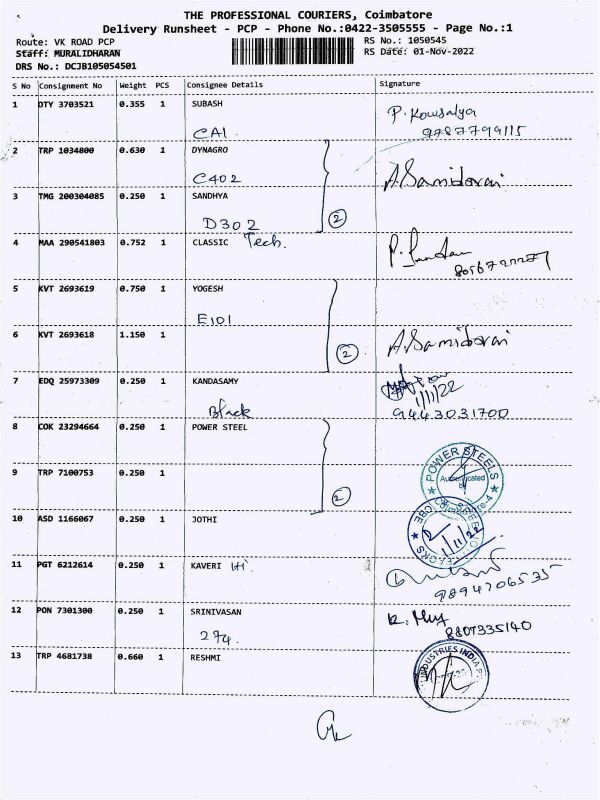 THE PROFESSIONAL COURIERS, Coimbatore
Delivery Runsheet - PCP - Phone No.:0422-3505555 - Page No.:1
Route: VK ROAD PCP RS No.: 1050545
Staff: MURALIDHARAN RS Date: 01-Nov-2022
DRS No.: DCJB105054501
S No Consignment No Weight PCS Consignee Details Signature
1 DTY 3703521 0.355 1 SUBASH P. Kowsalya
CA1 9787799115
2 TRP 1034800 0.630 1 DYNAGRO
C402 A.Samidorai
3 TMG 200304085 0.250 1 SANDHYA
D302 2
4 MAA 290541803 0.752 1 CLASSIC Tech.
5 KVT 2693619 0.750 1 YOGESH
E101
6 KVT 2693618 1.150 1 A.Samidorai
2
7 EDQ 25973309 0.250 1 KANDASAMY 1/11/22
Black 9443031700
8 COK 23294664 0.250 1 POWER STEEL
POWER STEELS
Authenticated
9 TRP 7100753 0.250 1
2
10 ASD 1166067 0.250 1 JOTHI
CBE 1/11/22
11 PGT 6212614 0.250 1 KAVERI
9894706535
12 PON 7301300 0.250 1 SRINIVASAN
274. 8807335140
13 TRP 4681738 0.660 1 RESHMI
INDUSTRIES INDIA